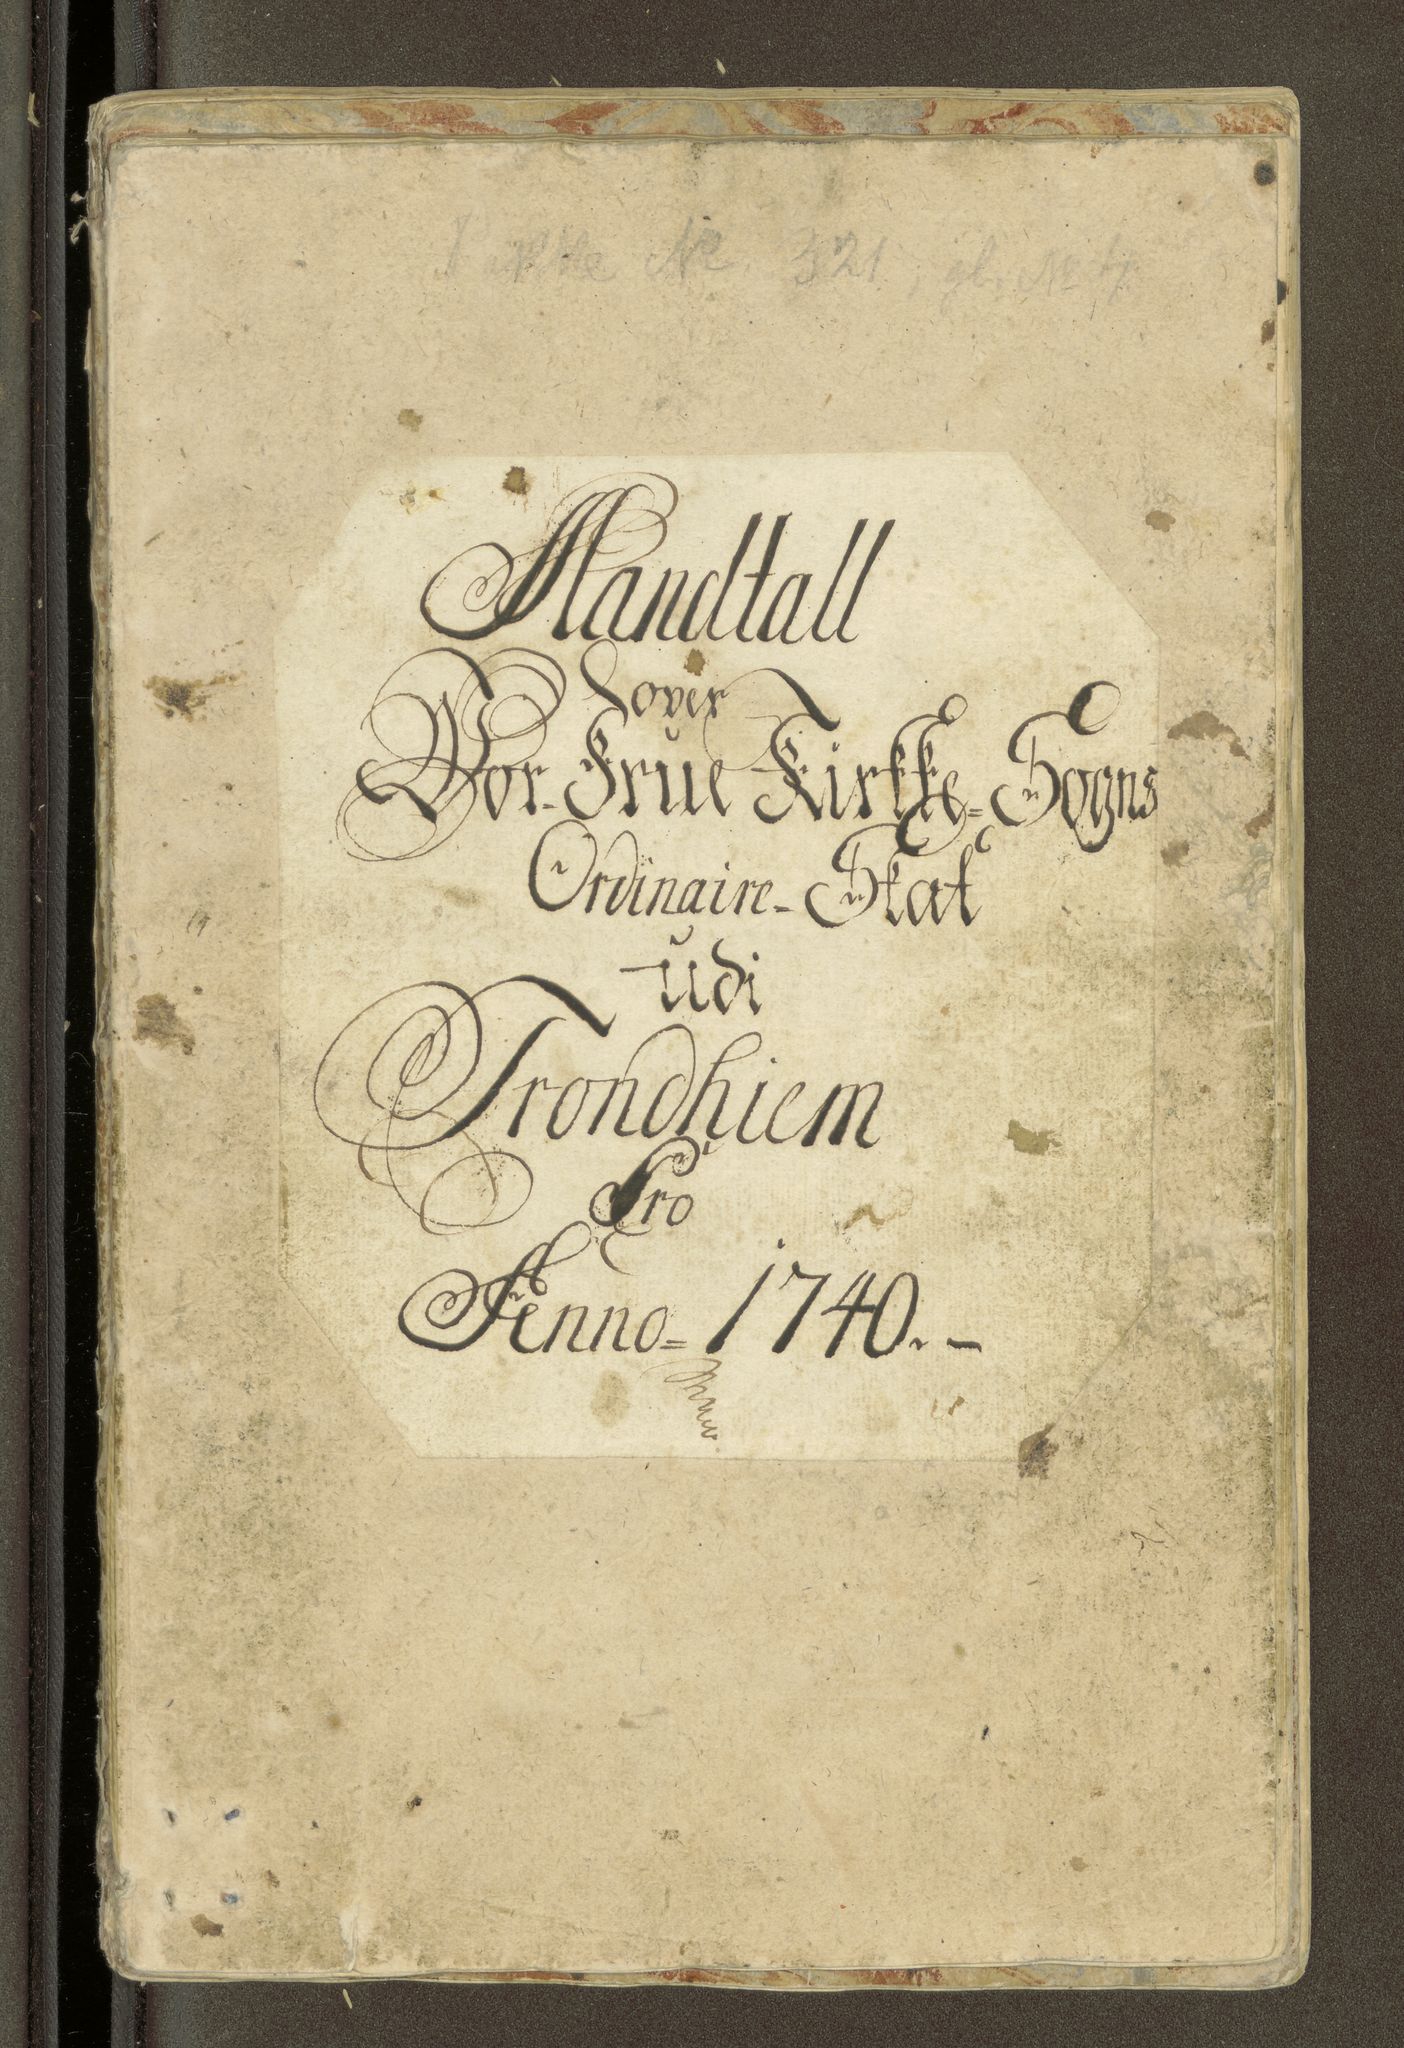 Pakke Nr. 321, gl. Nr
Mandtall
over
Vor-Frue Kirkke-Sogns
Ordinaire-Skat
udi
Trondhiem
Pro
Anno=1740.-